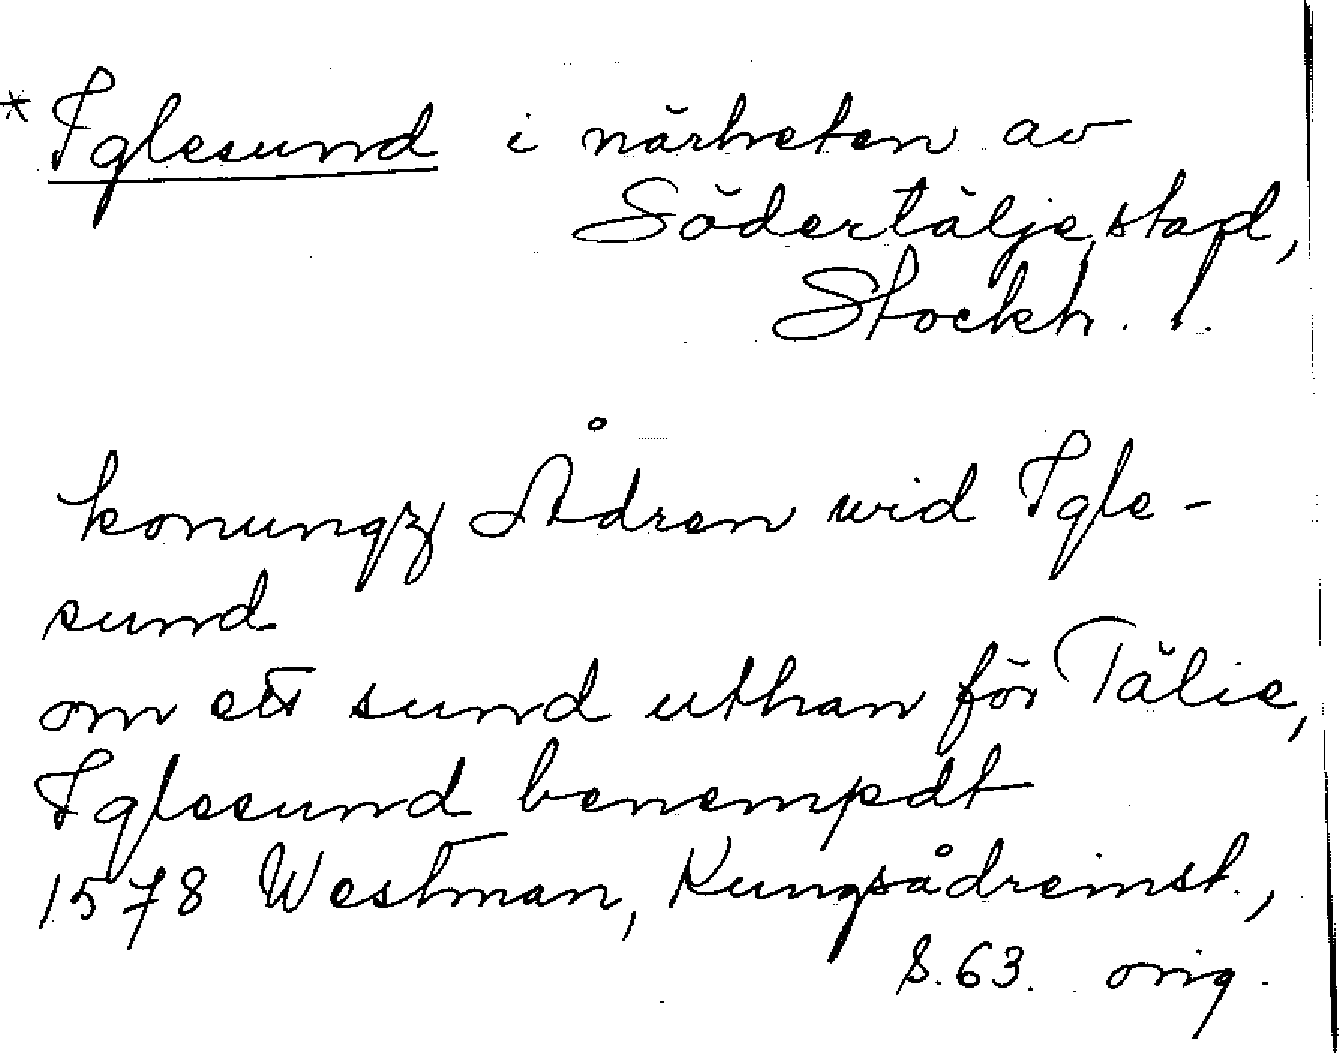 * Iglesund i närheten av
Södertälje stad,
Stockh. l.
konungz Ådren wid Igle-
sund
om ett sund uthan för Tälie,
Iglesund benempdt
1578 Westman, Kungsådreinst.,
s. 63. orig.